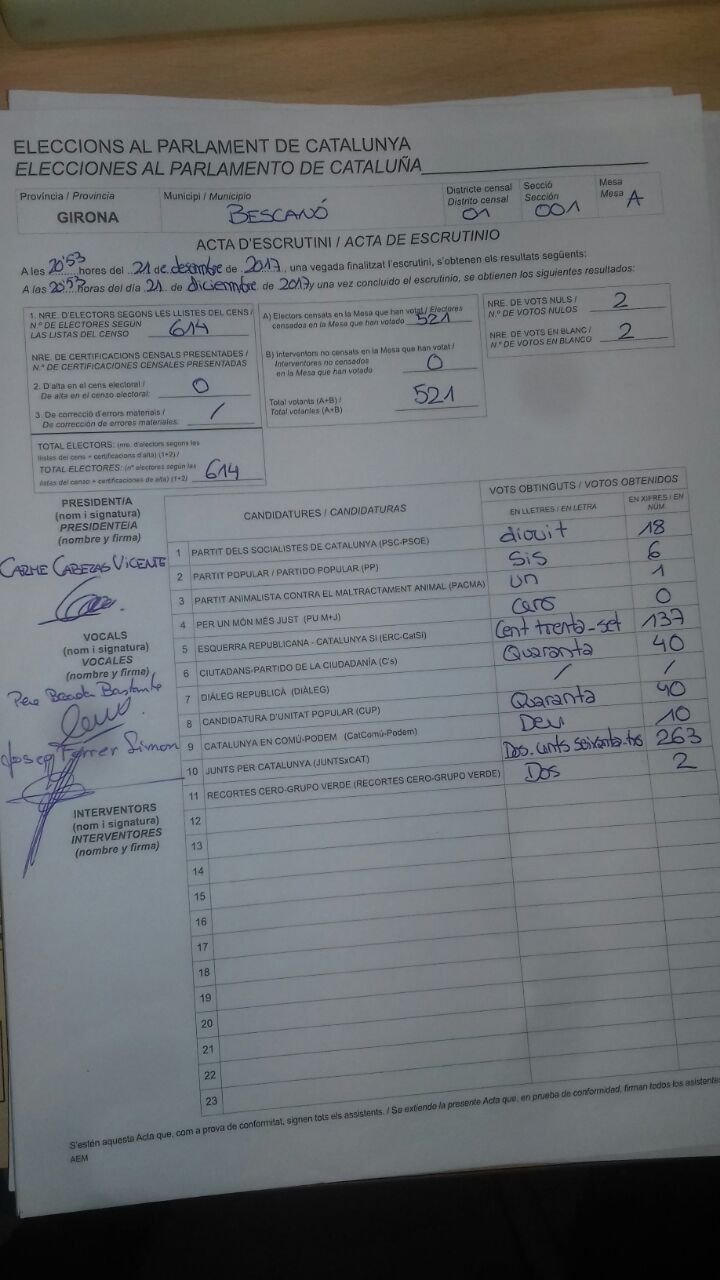 ELECCIONS AL PARLAMENT DE CATALUNYA
ELECCIONES AL PARLAMENTO DE CATALUÑA
Província / Provincia
GIRONA
Municipi / Municipio
BESCANÓ
Districte censal
Distrito censal
01
Secció
Sección
001
Mesa
Mesa A
ACTA D'ESCRUTINI / ACTA DE ESCRUTINIO
A les 20'53 hores del 21 de desembre de 2017, una vegada finalitzat l'escrutini, s'obtenen els resultats següents:
A las 20:53 horas del día 21 de diciembre de 2017 y una vez concluido el escrutinio, se obtienen los siguientes resultados:
1. NRE. D'ELECTORS SEGONS LES LLISTES DEL CENS /
N.º DE ELECTORES SEGÚN
LAS LISTAS DEL CENSO 614
NRE. DE CERTIFICACIONS CENSALS PRESENTADES /
N.º DE CERTIFICACIONES CENSALES PRESENTADAS
2. D'alta en el cens electoral /
De alta en el censo electoral: 0
3. De correcció d'errors materials /
De corrección de errores materiales: /
TOTAL ELECTORS: (nre. d'electors segons les
llistes del cens + certificacions d'alta) (1+2) /
TOTAL ELECTORES: (nº electores según las
listas del censo + certificaciones de alta) (1+2) 614
A) Electors censats en la Mesa que han votat / Electores
censados en la Mesa que han votado 521
B) Interventors no censats en la Mesa que han votat /
Interventores no censados
en la Mesa que han votado 0
Total votants (A+B) /
Total votantes (A+B) 521
NRE. DE VOTS NULS /
N.º DE VOTOS NULOS 2
NRE. DE VOTS EN BLANC /
N.º DE VOTOS EN BLANCO 2
PRESIDENT/A
(nom i signatura)
PRESIDENTE/A
(nombre y firma)
CARME CABEZAS VICENTE
VOCALS
(nom i signatura)
VOCALES
(nombre y firma)
Pere
Josep Ferrer Simon
INTERVENTORS
(nom i signatura)
INTERVENTORES
(nombre y firma)
CANDIDATURES / CANDIDATURAS
VOTS OBTINGUTS / VOTOS OBTENIDOS
EN LLETRES / EN LETRA
EN XIFRES / EN NÚM.
1 PARTIT DELS SOCIALISTES DE CATALUNYA (PSC-PSOE) diouit 18
2 PARTIT POPULAR / PARTIDO POPULAR (PP) Sis 6
3 PARTIT ANIMALISTA CONTRA EL MALTRACTAMENT ANIMAL (PACMA) un 1
4 PER UN MÓN MÉS JUST (PU M+J) cero 0
5 ESQUERRA REPUBLICANA - CATALUNYA SÍ (ERC-CatSí) Cent trenta-set 137
6 CIUTADANS-PARTIDO DE LA CIUDADANÍA (C's) Quaranta 40
7 DIÀLEG REPUBLICÀ (DIÀLEG) / /
8 CANDIDATURA D'UNITAT POPULAR (CUP) Quaranta 40
9 CATALUNYA EN COMÚ-PODEM (CatComú-Podem) Deu 10
10 JUNTS PER CATALUNYA (JUNTSxCAT) Dos.cents seixanta-tres 263
11 RECORTES CERO-GRUPO VERDE (RECORTES CERO-GRUPO VERDE) Dos 2
12
13
14
15
16
17
18
19
20
21
22
23
S'estén aquesta Acta que, com a prova de conformitat, signen tots els assistents. / Se extiende la presente Acta que, en prueba de conformidad, firman todos los asistentes
AEM